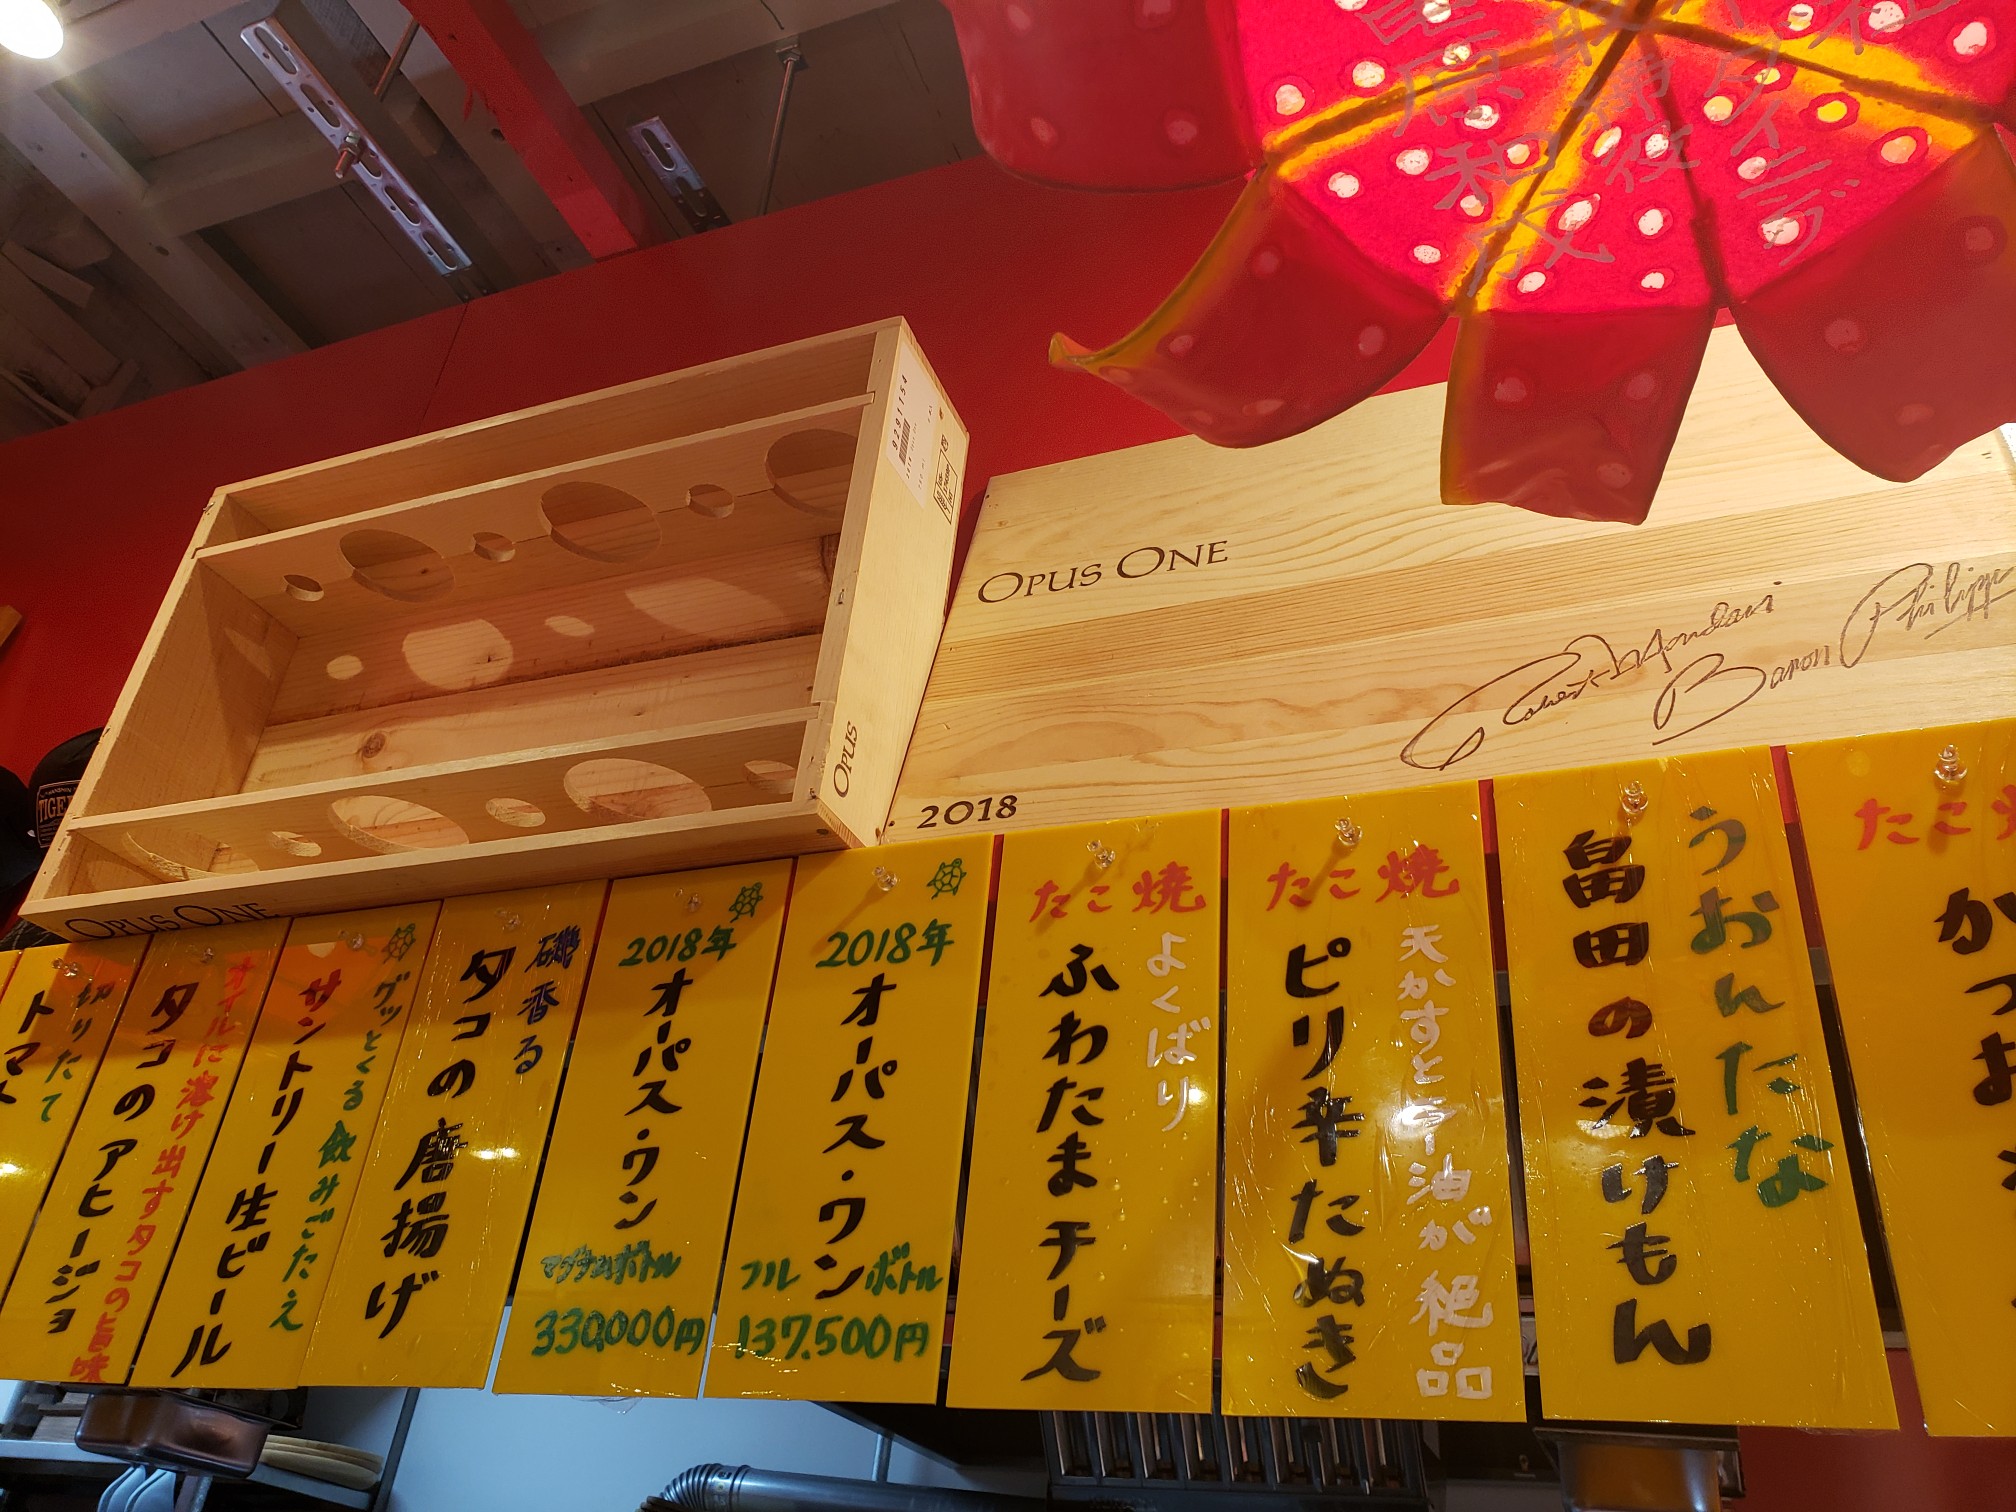 9291154
OPUS
OPUS ONE
OPUS ONE
Robert Mondavi
Baron Philippe
2018
TIGE
たこ
かつお
うおんたな
畠田の漬けもん
たこ焼
天かすと醤油が絶品
ピリ辛たぬき
たこ焼
よくばり
ふわたまチーズ
2018年
オーパス・ワン
フルボトル
137,500円
2018年
オーパス・ワン
マグナムボトル
330,000円
磯香る
タコの唐揚げ
グッとくる飲みごたえ
サントリー生ビール
オイルに溶け出すタコの旨味
タコのアヒージョ
切りたて
トマト